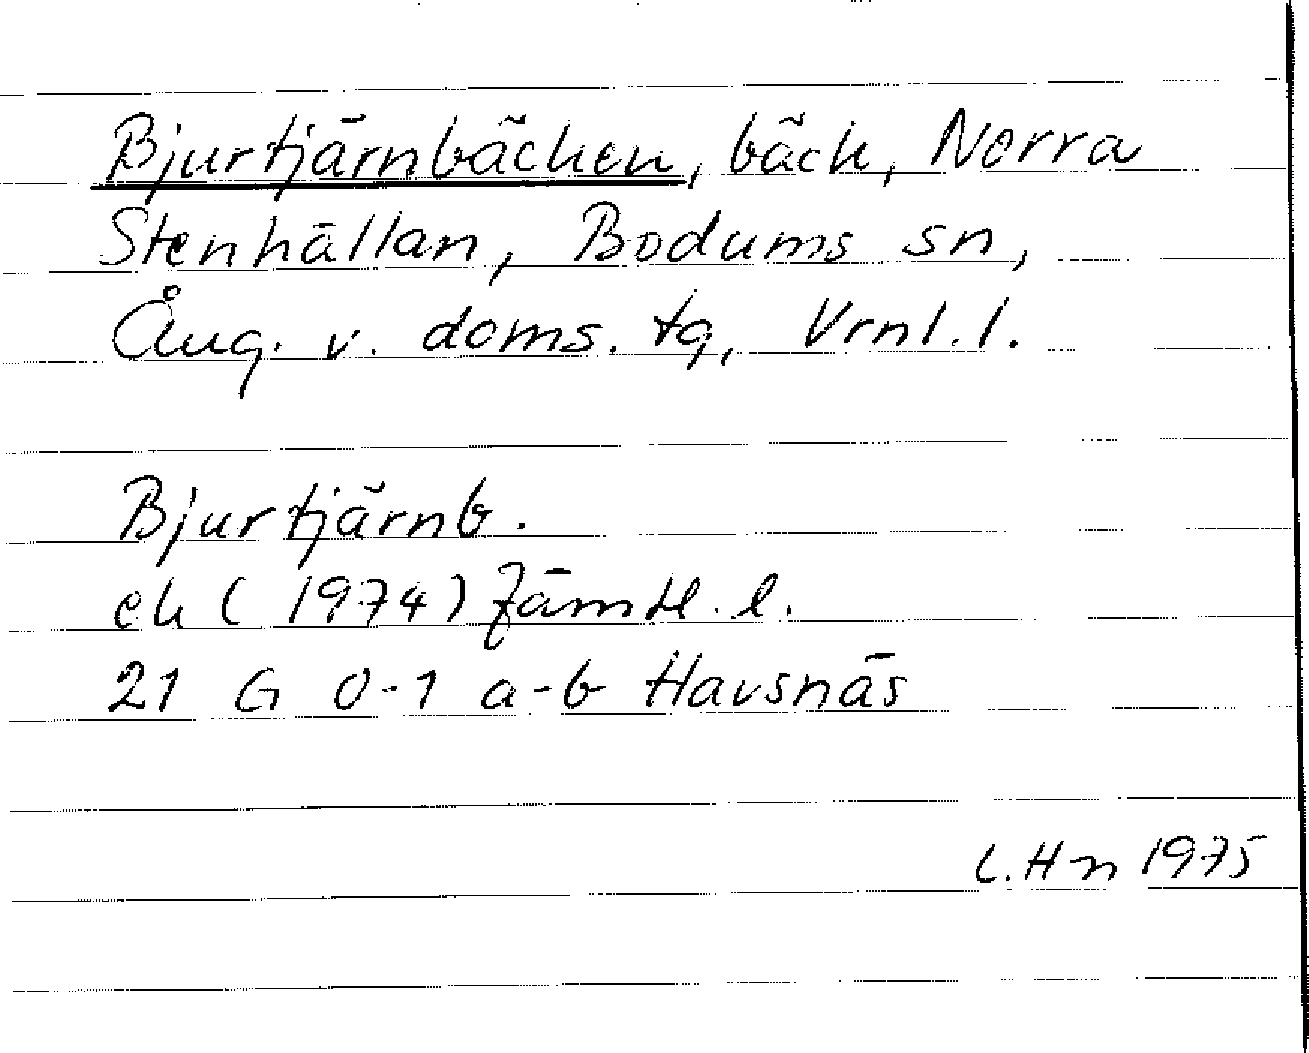 Bjurtjärnbäcken, bäck, Norra
Stenhällan, Bodums sn,
Ång. v. doms. tg, Vrnl. l.
Bjurtjärnb.
ek (1974) Jämtl. l.
21 G 0-1 a-b Havsnäs
L. Hn 1975